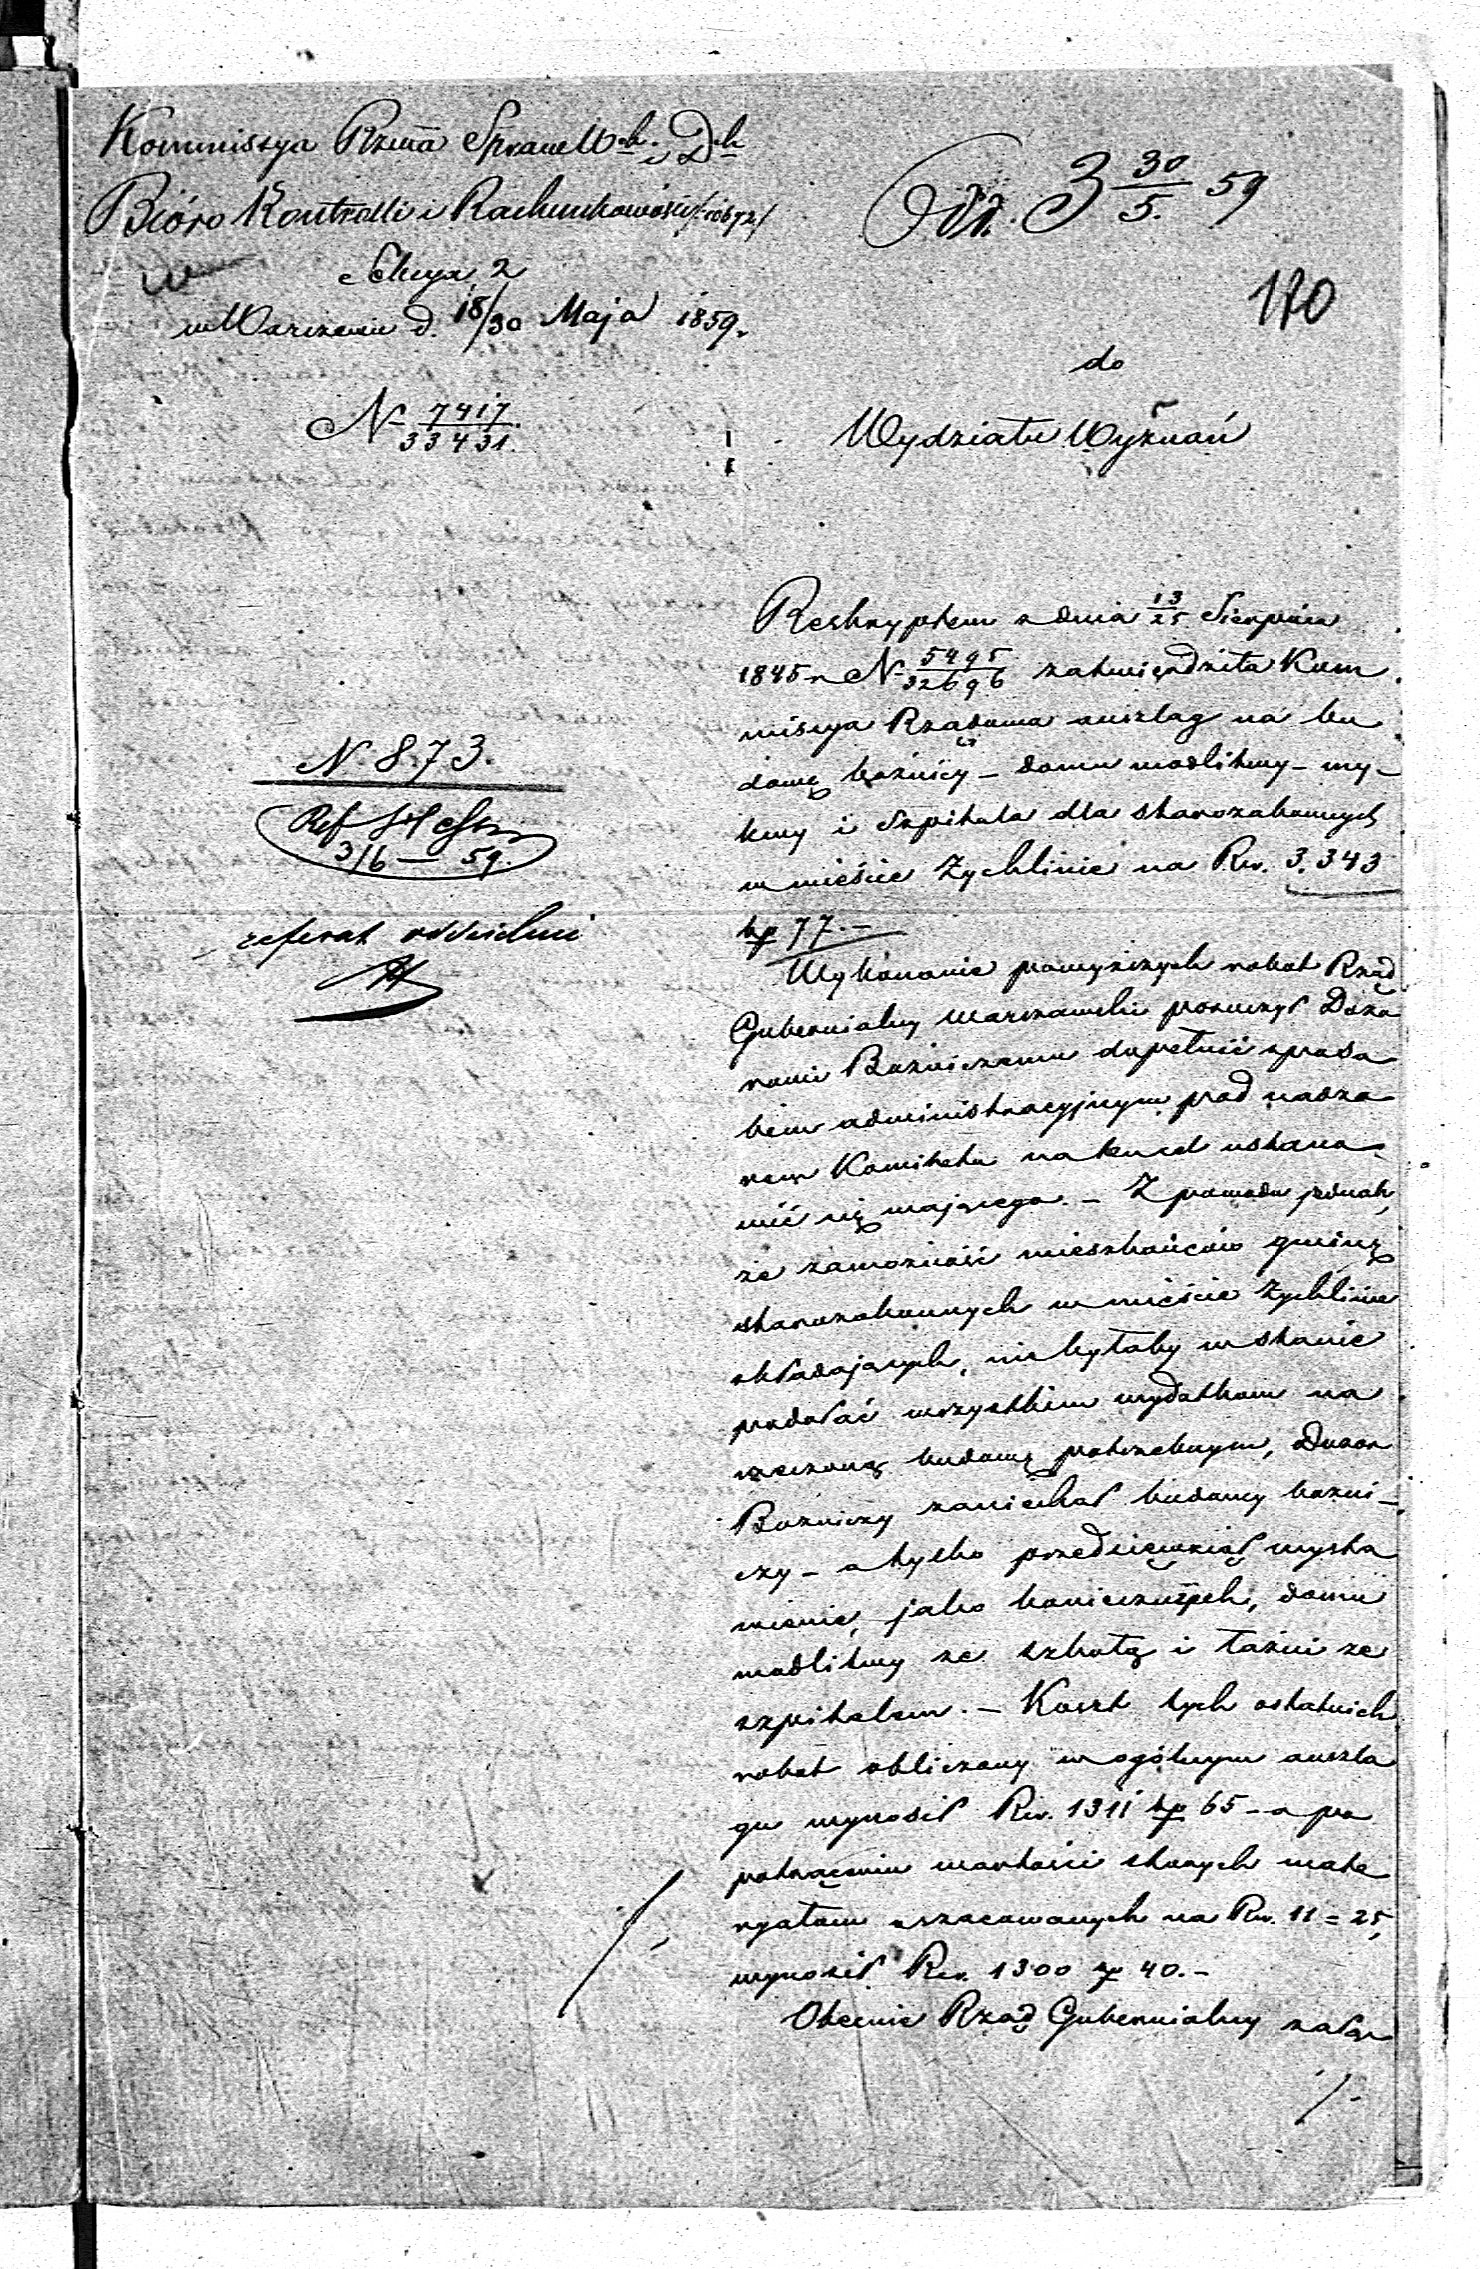 Kommissya Rzowa Spraw Wch. i Dch
Bióro Kontrolli i Rachunkowości
Sekcya 2
w Warszawie d. 18/30 Maja 1859.
N 7417/33431.
Od. 3 30/5. 59
170
do
Wydziału Wyznań
N. 8.73.
Ref
3/6 — 59.
referat oddzielnie
Reskryptem z dnia 13/25 Sierpnia
1845 r N 5495/32696 zatwierdziła Kom
missya Rządowa anszlag na bu
dowę bożnicy – domu modlitwy – my–
kwy i Szpitala dla starozakonnych
w mieście Żychlinie na Rsr. 3.343
kp 77.–
Wykonanie powyższych robot Rząd
Gubernialny Warszawski poruczył Dozo
rowi Bożniczemu dopełnić sposo
bem administracyjnym pod nadzo
rem Komitetu na ten cel ustano
wić się mającego. – Z powodu jednak,
że zamożność mieszkańców gminę
starozakonnych w mieście Żychlinie
składających, nie byłaby w stanie
podołać wszystkim wydatkom na
rzeczoną budowę potrzebnym, Dozor
Bożniczy zaniechał budowy bożni–
czy – a tylko przedsięwziął wysta
wienie, jako koniecznych, domu
modlitwy ze szkołą i łaźni ze
szpitalem. – Koszt tych ostatnich
robot obliczony w ogólnym anszla
gu wynosił Rsr. 1311 kp 65 – a po
potrąceniu wartości starych mate
ryałów oszacowanych na Rsr. 11 = 25,
wynosił Rsr. 1300 kp 40. –
Obecnie Rząd Gubernialny załą
/.